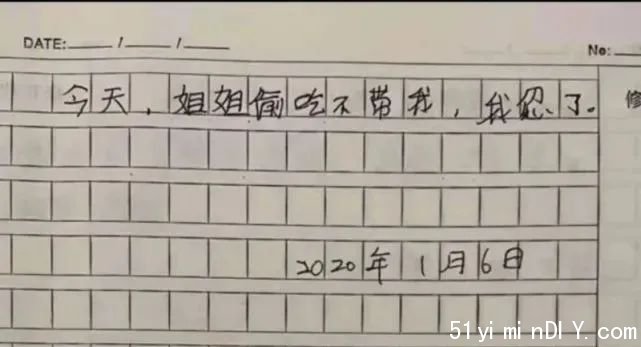 DATE: ____/____/____
No:
今天，姐姐偷吃不带我，我忍了。
修
2020年1月6日
51yiminDIY.com